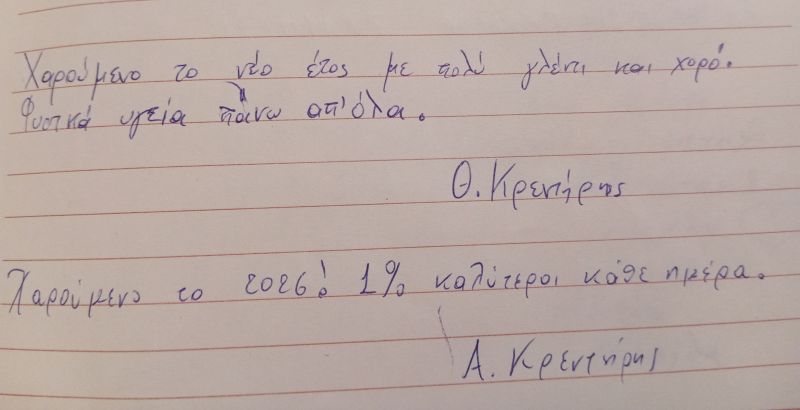 Χαρούμενο το νέο έτος με πολύ γλέντι και χορό.
Φυσικά υγεία πάνω απ'όλα.
Θ. Κρεντήρης
Χαρούμενο το 2026! 1% καλύτεροι κάθε ημέρα.
Α. Κρεντήρης